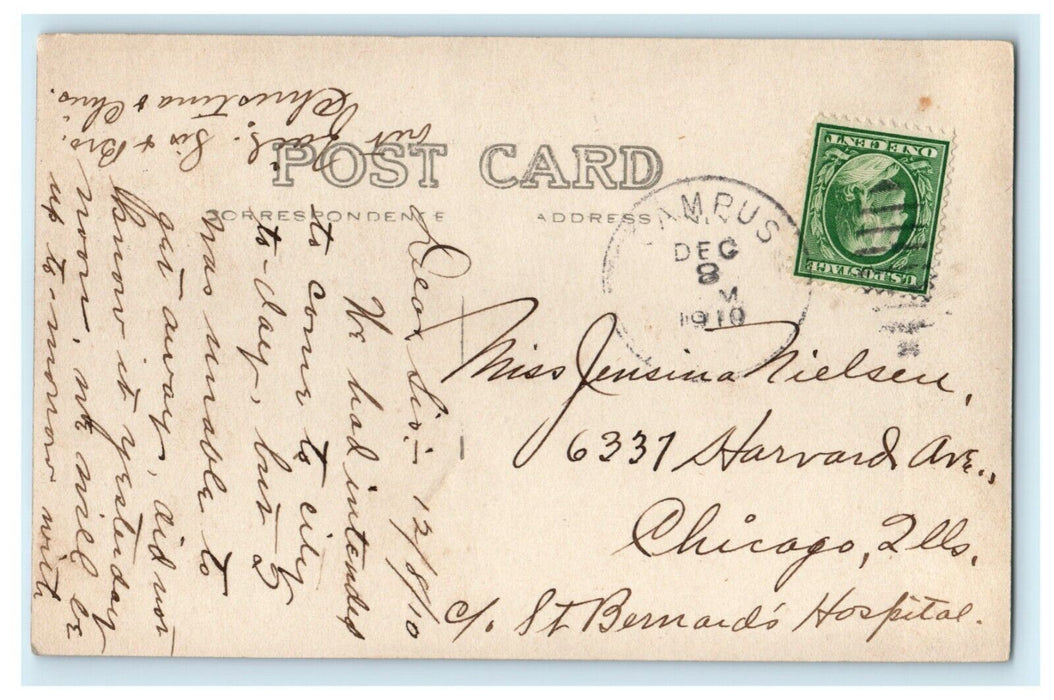 POST CARD
CORRESPONDENCE
ADDRESS
CAMPUS
DEC
8
M
1910
U.S. POSTAGE
ONE CENT
Miss Jensina Nielsen,
6337 Harvard Ave.,
Chicago, Ills.
c/o. St Bernard's Hospital.
Dear Sis:- 12/8/10
We had intended
to come to city
to-day, but I
was unable to
get away, did not
know it yesterday
noon, we will be
up to-morrow with
out fail. Sis & Bro.
Christina & Chris.